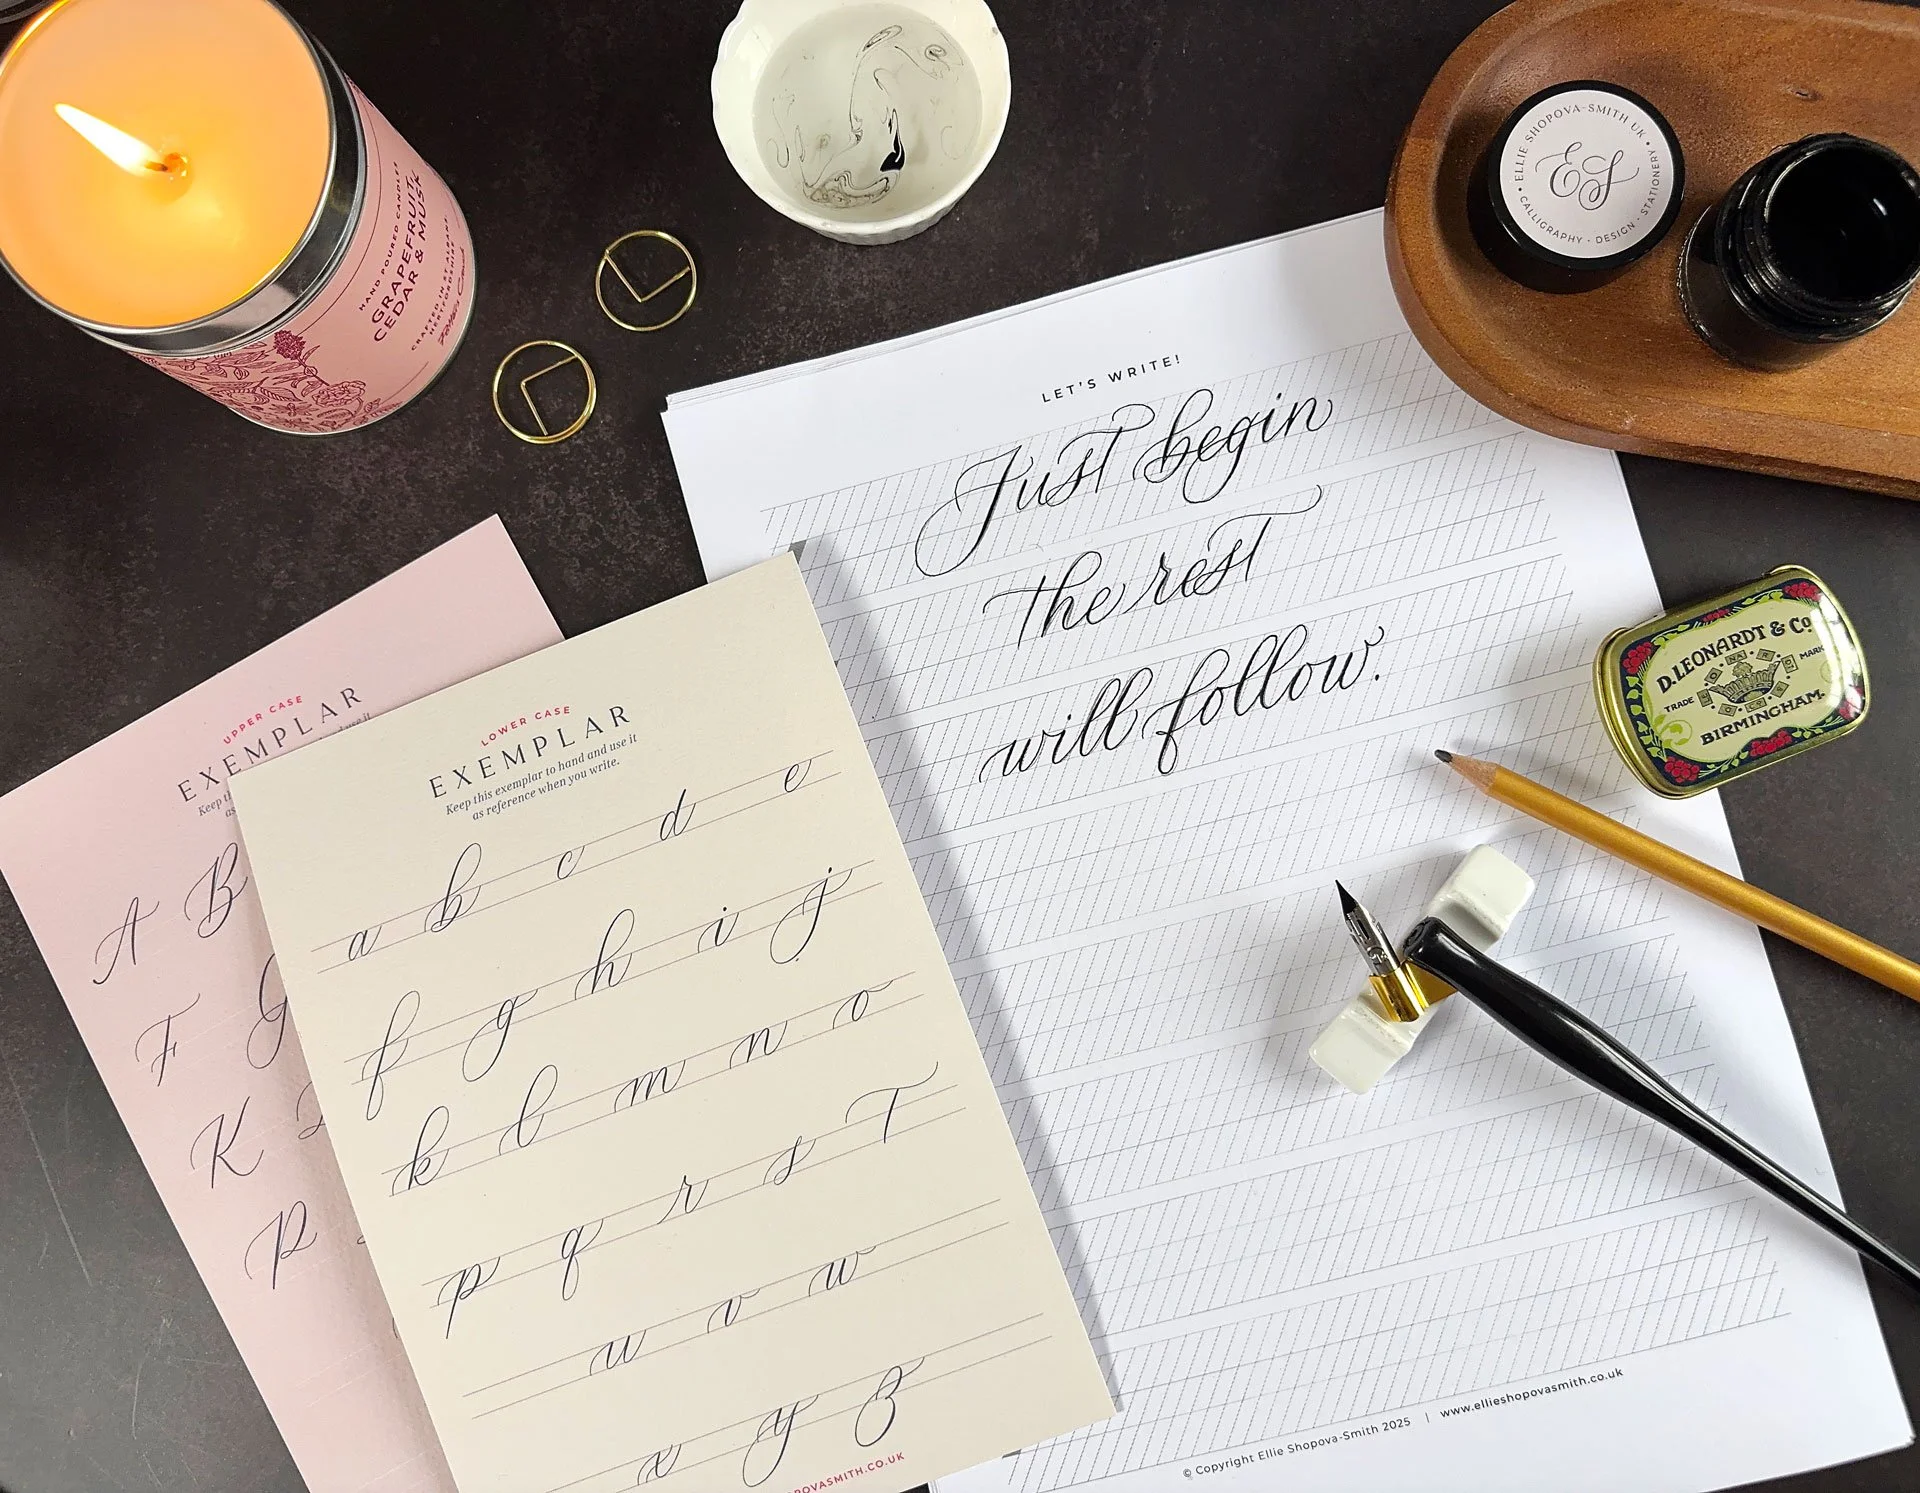 HAND POURED CANDLES
GRAPEFRUIT,
CEDAR & MUSK
CRAFTED IN ST ALBANS
HERTFORDSHIRE
• ELLIE SHOPOVA-SMITH UK •
ES
CALLIGRAPHY • DESIGN • STATIONERY
LET'S WRITE!
Just begin
the rest
will follow.
D. LEONARDT & Co
TRADE MARK
BIRMINGHAM.
UPPER CASE
EXEMPLAR
Keep
as
A B
F G
K
P
LOWER CASE
EXEMPLAR
Keep this exemplar to hand and use it
as reference when you write.
a b c d e
f g h i j
k l m n o
p q r s t
u v w
x y z
OVASMITH.CO.UK
© Copyright Ellie Shopova-Smith 2025 | www.ellieshopovasmith.co.uk